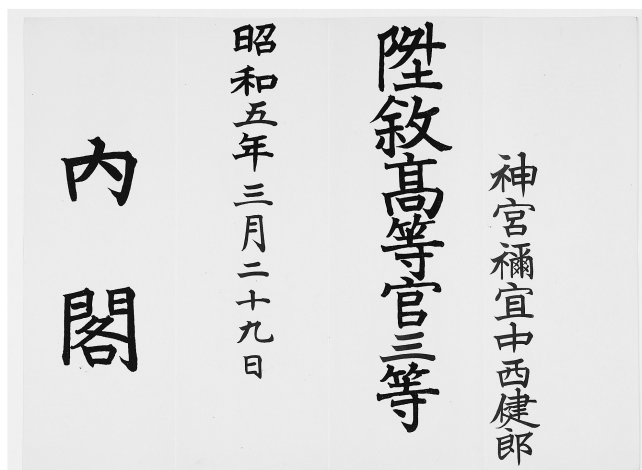 神宮禰宜中西健郎
陞敘高等官三等
昭和五年三月二十九日
内閣